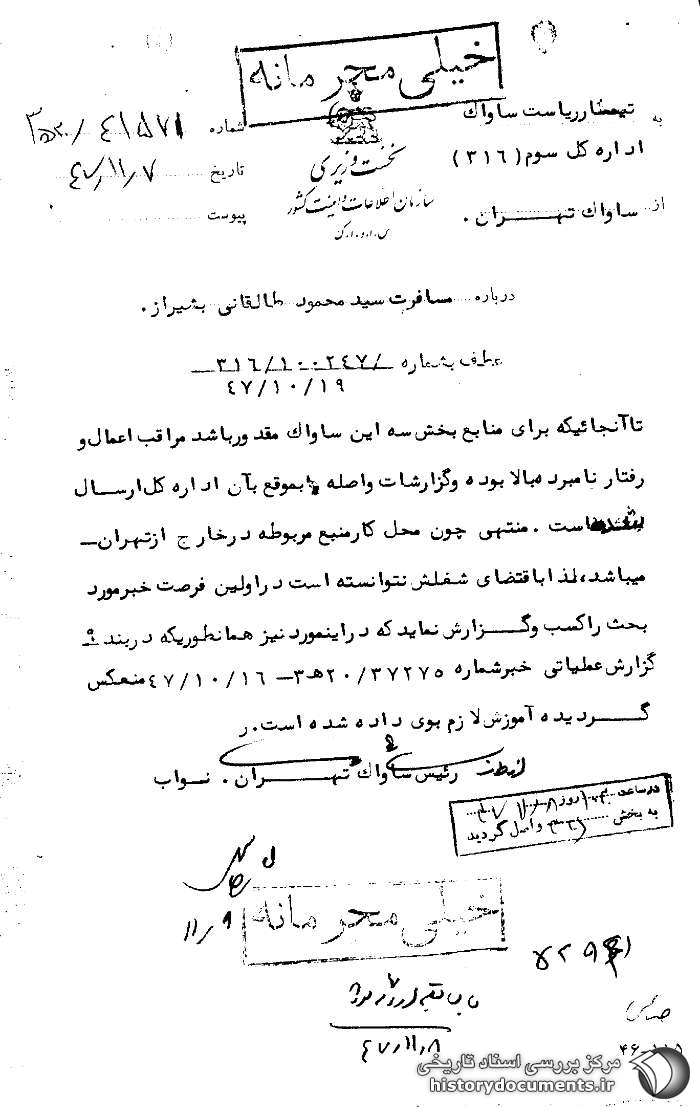 خیلی محرمانه
به تیمسار ریاست ساواک
اداره کل سوم (۳۱۶)
از ساواک تهران.
نخست وزیری
سازمان اطلاعات و امنیت کشور
س.ا.و.ا.ک
شماره ۴۱۵۷۱/
تاریخ ۴۷/۱۱/۷
پیوست
درباره مسافرت سید محمود طالقانی بشیراز.
عطف بشماره /۳۱۶/۱۰۰۲۴۷
۴۷/۱۰/۱۹
تاآنجائیکه برای منابع بخش سه این ساواک مقدورباشد مراقب اعمال و
رفتار نامبرده بالا بوده وگزارشات واصله بموقع بآن اداره کل ارسال
است. منتهی چون محل کارمنبع مربوطه درخارج ازتهران–
میباشد، لذا باقتضای شغلش نتوانسته است دراولین فرصت خبرمورد
بحث راکسب وگزارش نماید که دراینمورد نیز همانطوریکه دربند ۹
گزارش عملیاتی خبرشماره ۲۰/۳۷۲۷۵هـ۳–۴۷/۱۰/۱۶ منعکس
گردیده آموزش لازم بوی داده شده است.ر
رئیس ساواک تهران. نواب
در ساعت روز
به بخش واصل گردید
۱۱/۹
خیلی محرمانه
۴۷/۱۱/۸
۴۶-۱۱۵
مرکز بررسی اسناد تاریخی
historydocuments.ir